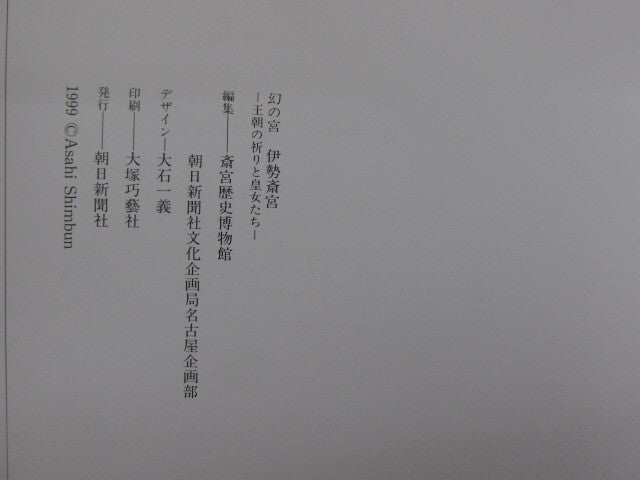 幻の宮 伊勢斎宮
―王朝の祈りと皇女たち―
編集――斎宮歴史博物館
朝日新聞社文化企画局名古屋企画部
デザイン―大石一義
印刷――大塚巧藝社
発行――朝日新聞社
1999 ©Asahi Shimbun